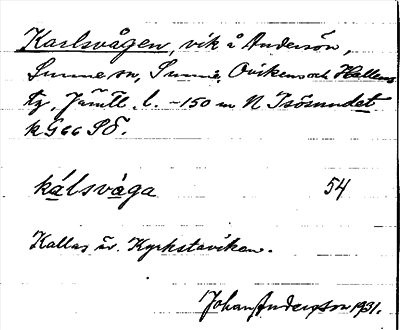 Karlsvågen, vik å Andersön,
Sunne sn, Sunne, Ovikens och Hallens
tg, Jämtl. l. -150 m N Isösundet
k G 66 SÖ.
kálsvàga 54
Kallas äv. Kyrkstaviken.
Johan Anderson 1931.